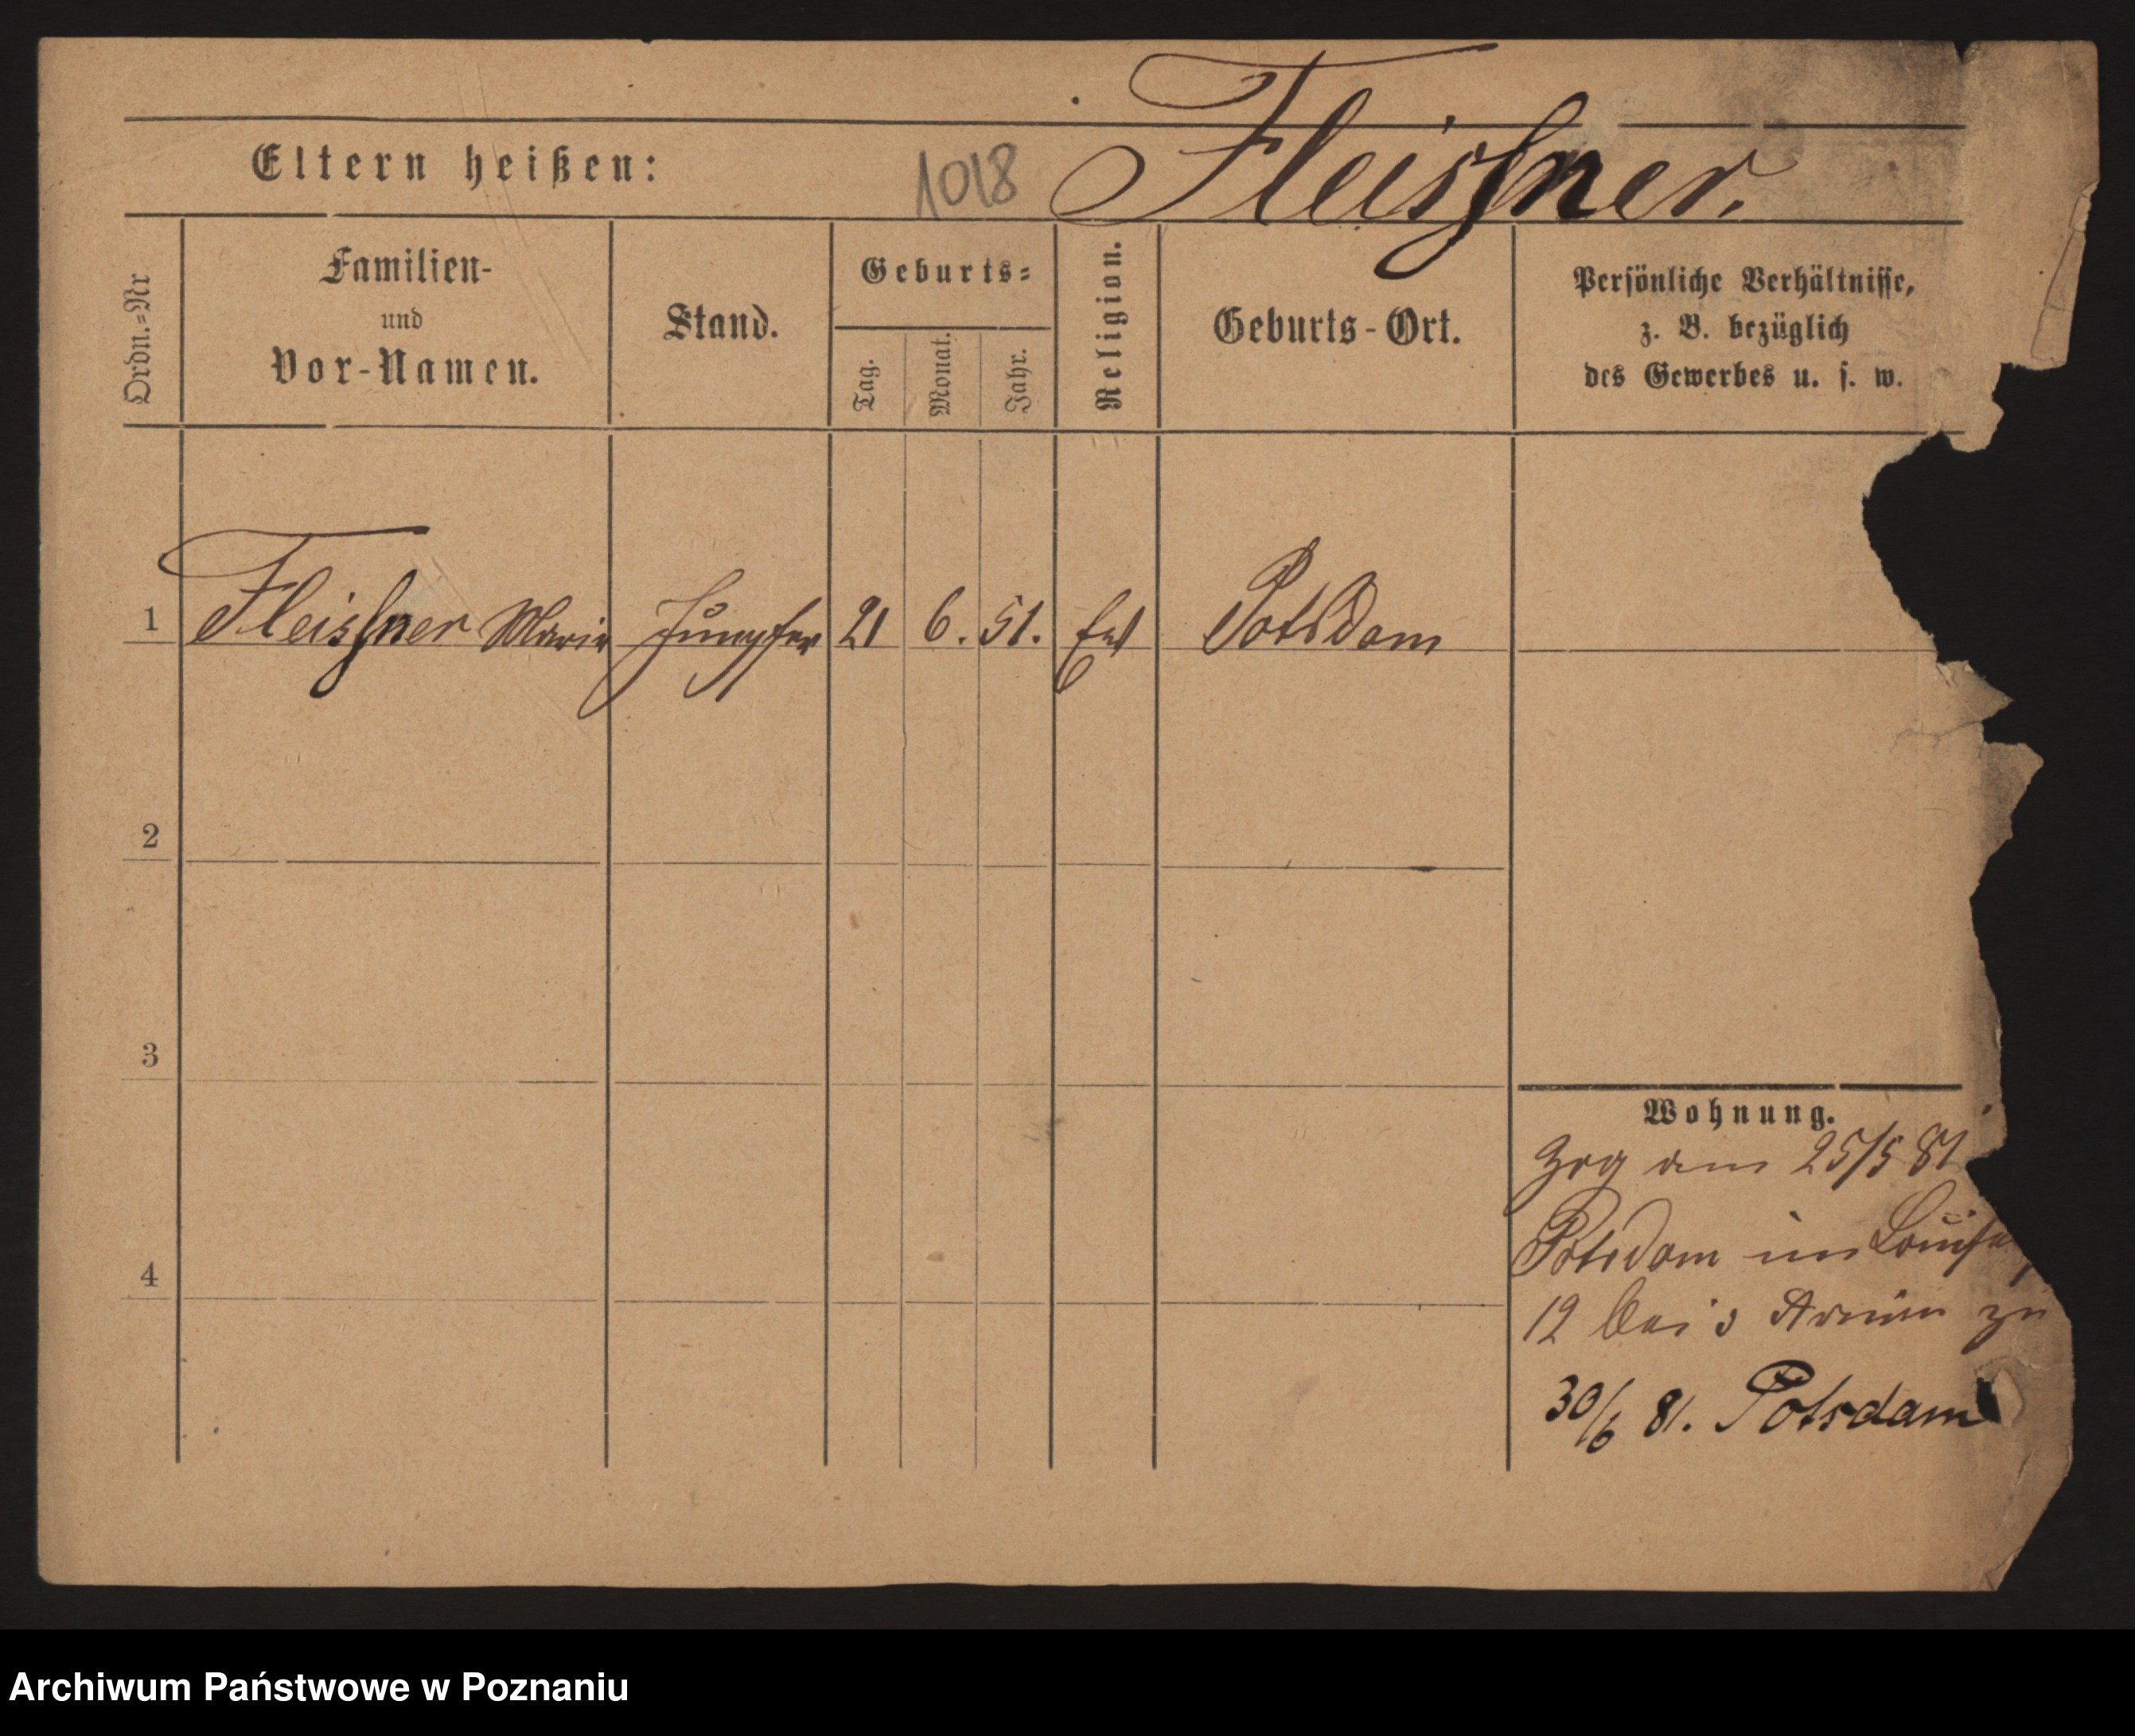 Fleissner.
Eltern heißen:
1018
Ordn.=Nr
Familien-
und
Vor-Namen.
Stand.
Geburts=
Tag.
Monat.
Jahr.
Religion.
Geburts-Ort.
Persönliche Verhältnisse,
z. B. bezüglich
des Gewerbes u. s. w.
1 Fleissner Marie Jungfer 21 6. 51. Potsdam
2
3
4
Wohnung.
Zog am 25/5 81
Potsdam
12 bei v Arnim zu
30/6 81. Potsdam
Archiwum Państwowe w Poznaniu